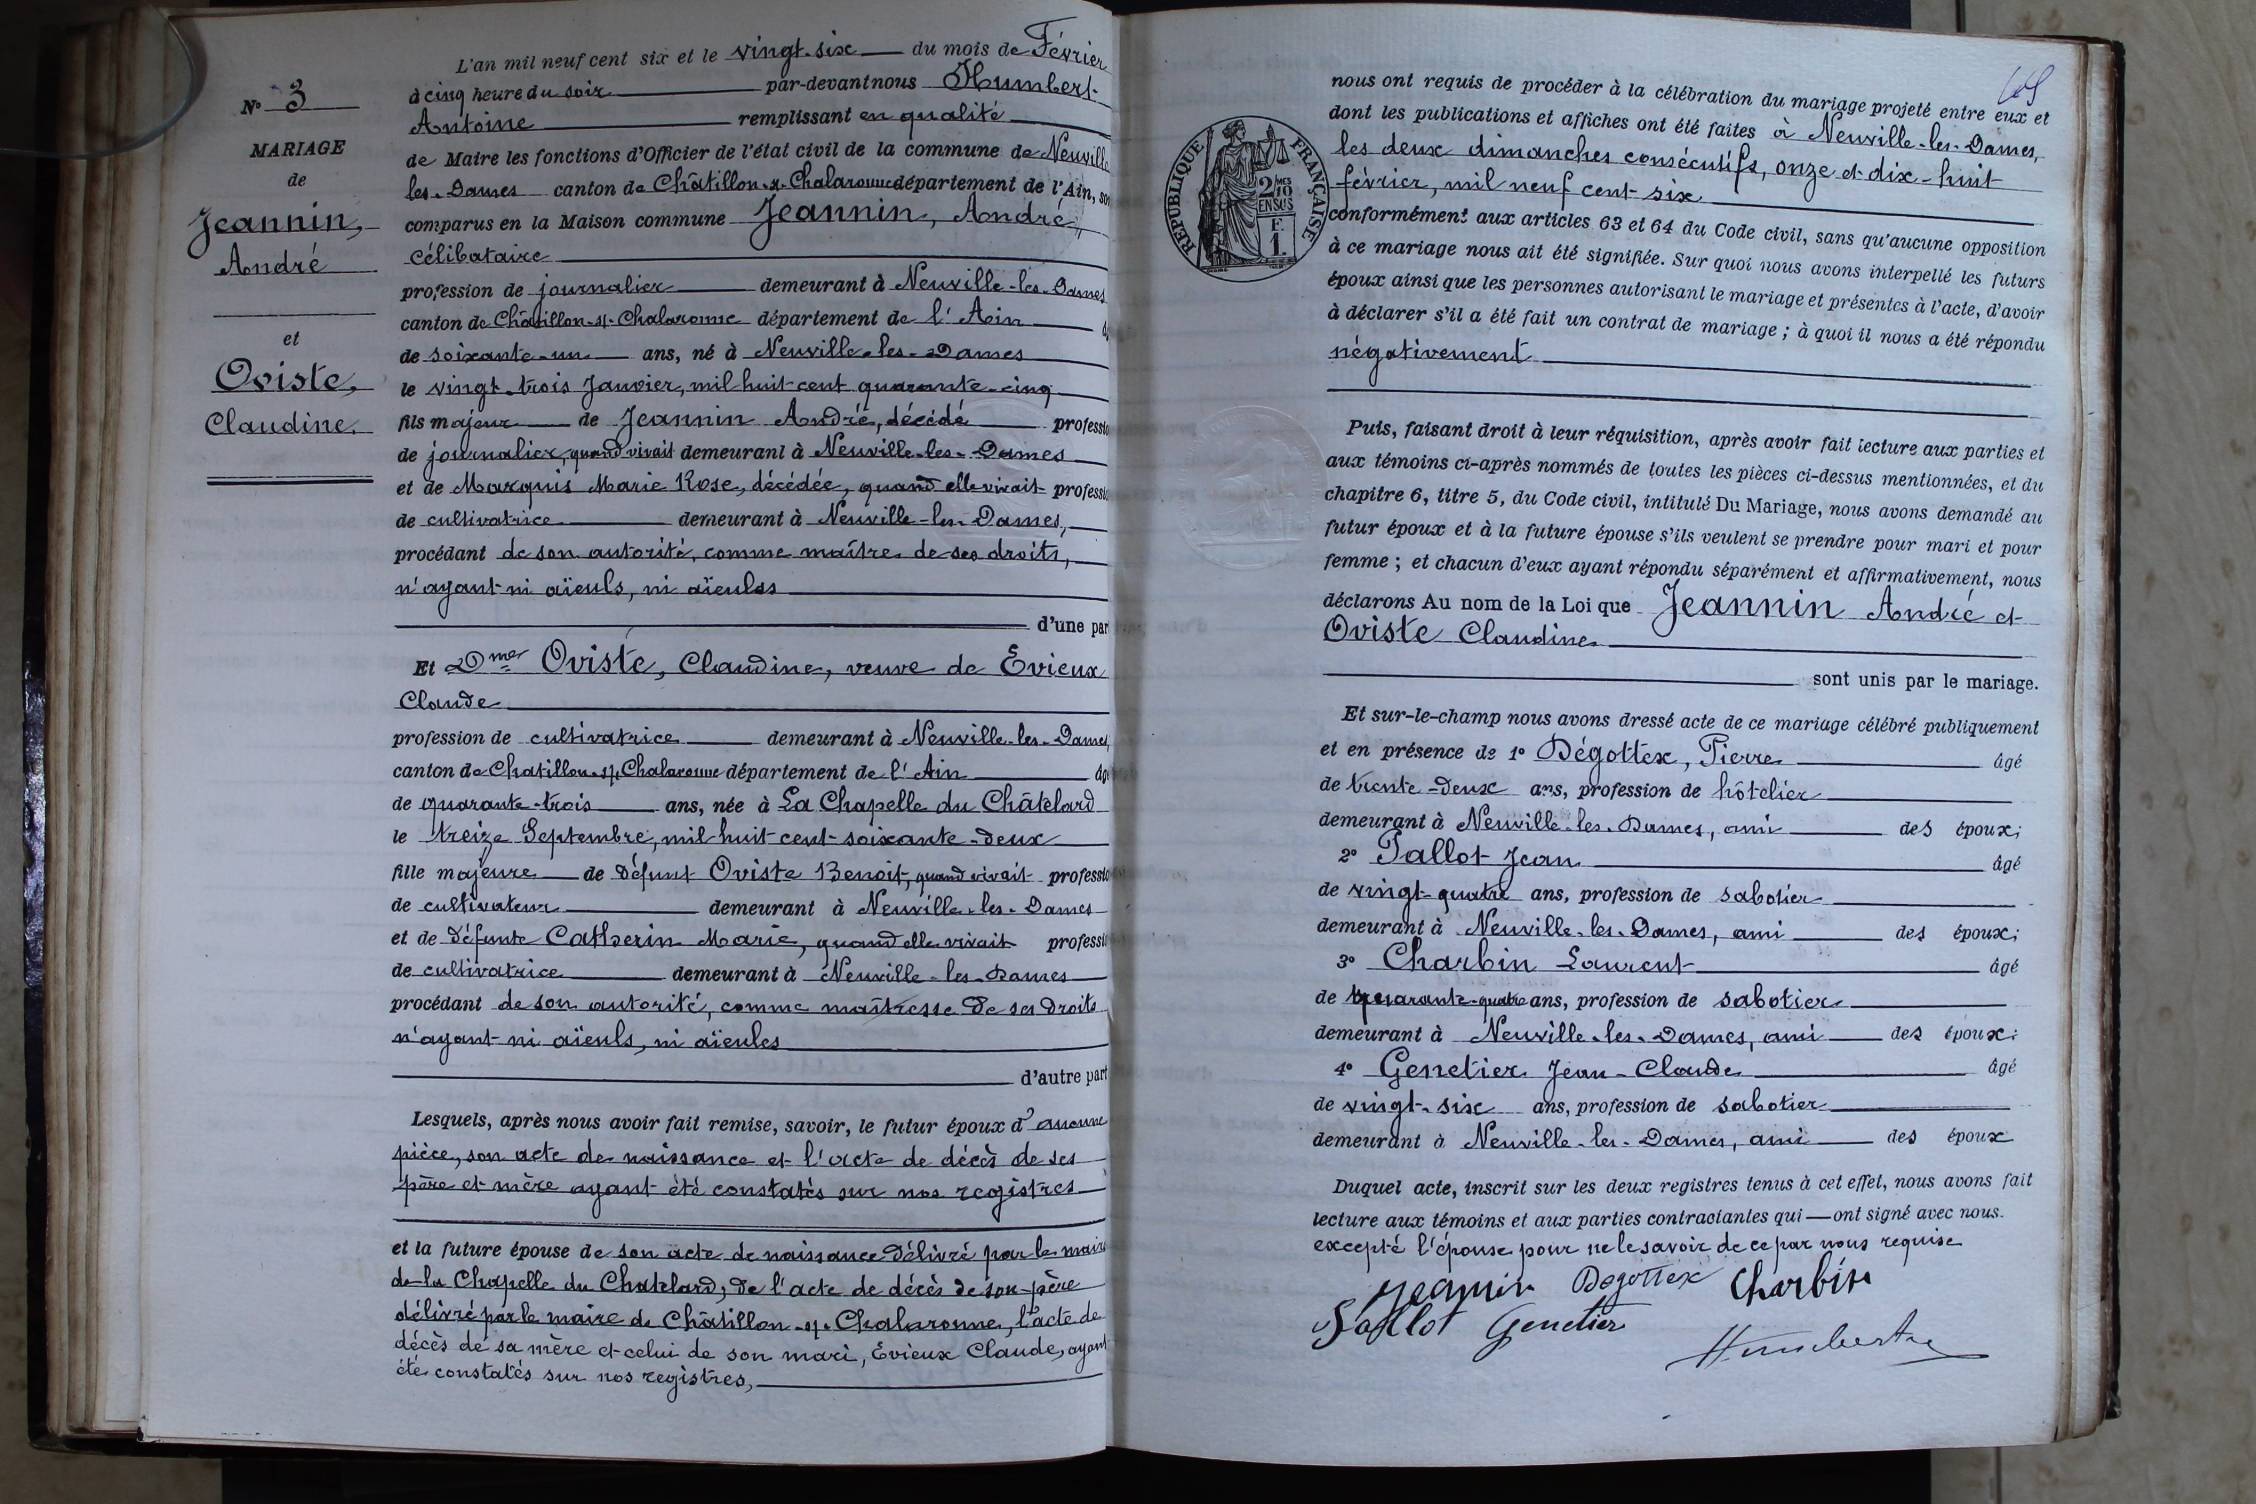 N° 3
MARIAGE
de
Jeannin,
André
et
Oviste,
Claudine.
L'an mil neuf cent six et le vingt-six du mois de Février
à cinq heure du soir par-devant nous Humbert
Antoine remplissant en qualité
de Maire les fonctions d'Officier de l'état civil de la commune de Neuville
les-Dames canton de Châtillon-s/-Chalaronne département de l'Ain, son
comparus en la Maison commune Jeannin, André,
célibataire
profession de journalier demeurant à Neuville-les-Dames
canton de Châtillon-s/-Chalaronne département de l'Ain
de soixante-un ans, né à Neuville-les-Dames
le vingt-trois Janvier, mil huit cent quarante-cinq
fils majeur de Jeannin André, décédé professio
de journalier, quand vivait demeurant à Neuville-les-Dames
et de Marquis Marie Rose, décédée, quand elle vivait professio
de cultivatrice demeurant à Neuville-les-Dames,
procédant de son autorité, comme maître de ses droits,
n'ayant ni aïeuls, ni aïeules
d'une par
Et Dme Oviste, Claudine, veuve de Evieux
Claude
profession de cultivatrice demeurant à Neuville-les-Dames,
canton de Chatillon-s/-Chalaronne département de l'Ain âgé
de quarante-trois ans, née à La Chapelle du Châtelard
le treize Septembre, mil huit cent soixante-deux
fille majeure de défunt Oviste Benoit, quand vivait professio
de cultivateur demeurant à Neuville-les-Dames
et de défunte Catherin Marie, quand elle vivait professio
de cultivatrice demeurant à Neuville-les-Dames
procédant de son autorité, comme maîtresse de ses droits
n'ayant ni aïeuls, ni aïeules
d'autre part
Lesquels, après nous avoir fait remise, savoir, le futur époux d'aucune
pièce, son acte de naissance et l'acte de décès de ses
père et mère ayant été constatés sur nos registres
et la future épouse de son acte de naissance délivré par le maire
de la Chapelle du Chatelard, de l'acte de décès de son père
délivré par le maire de Châtillon-s/-Chalaronne, l'acte de
décès de sa mère et celui de son mari, Évieux Claude, ayant
été constatés sur nos registres,
RÉPUBLIQUE FRANÇAISE
2 MES
10
EN SUS
F.
1.
nous ont requis de procéder à la célébration du mariage projeté entre eux et
dont les publications et affiches ont été faites à Neuville-les-Dames,
les deux dimanches consécutifs, onze et dix-huit
février, mil neuf cent six
conformément aux articles 63 et 64 du Code civil, sans qu'aucune opposition
à ce mariage nous ait été signifiée. Sur quoi nous avons interpellé les futurs
époux ainsi que les personnes autorisant le mariage et présentes à l'acte, d'avoir
à déclarer s'il a été fait un contrat de mariage ; à quoi il nous a été répondu
négativement
Puis, faisant droit à leur réquisition, après avoir fait lecture aux parties et
aux témoins ci-après nommés de toutes les pièces ci-dessus mentionnées, et du
chapitre 6, titre 5, du Code civil, intitulé Du Mariage, nous avons demandé au
futur époux et à la future épouse s'ils veulent se prendre pour mari et pour
femme ; et chacun d'eux ayant répondu séparément et affirmativement, nous
déclarons Au nom de la Loi que Jeannin André et
Oviste Claudine
sont unis par le mariage.
Et sur-le-champ nous avons dressé acte de ce mariage célébré publiquement
et en présence de 1° Dégottex, Pierre âgé
de trente-deux ans, profession de hôtelier
demeurant à Neuville-les-Dames, ami des époux;
2° Pallot Jean âgé
de vingt-quatre ans, profession de sabotier
demeurant à Neuville-les-Dames, ami des époux;
3° Charbin Laurent âgé
de quarante-quatre ans, profession de sabotier
demeurant à Neuville-les-Dames, ami des époux;
4° Genetier Jean-Claude âgé
de vingt-six ans, profession de sabotier
demeurant à Neuville-les-Dames, ami des époux
Duquel acte, inscrit sur les deux registres tenus à cet effet, nous avons fait
lecture aux témoins et aux parties contractantes qui ont signé avec nous.
excepté l'épouse pour ne le savoir de ce par nous requise
Jeannin Degottex Charbin
Pallot Genetier
Humbert